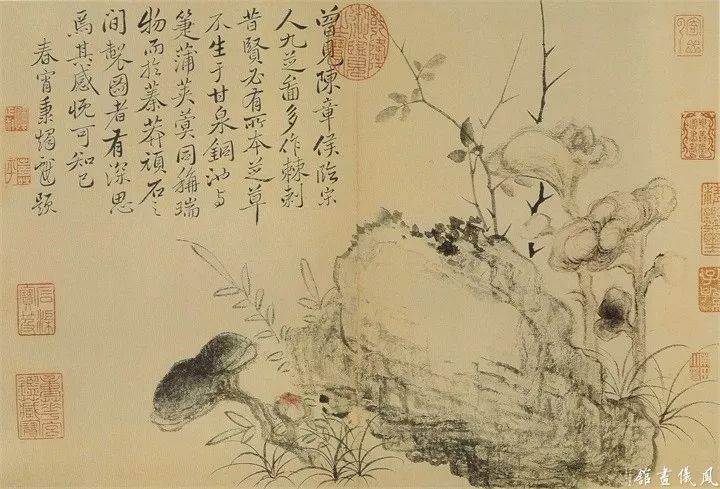 曾見陳章侯臨宋
人九芝圖多作棘刺
昔賢必有所本芝草
不生于甘泉銅池與
箑蒲莢蓂同稱瑞
物而於蓁莽頑石之
間製圖者有深思
焉其感慨可知已
春宵秉燭戲題
石渠寶笈
重華宮鑑藏寶
鳳儀畫館